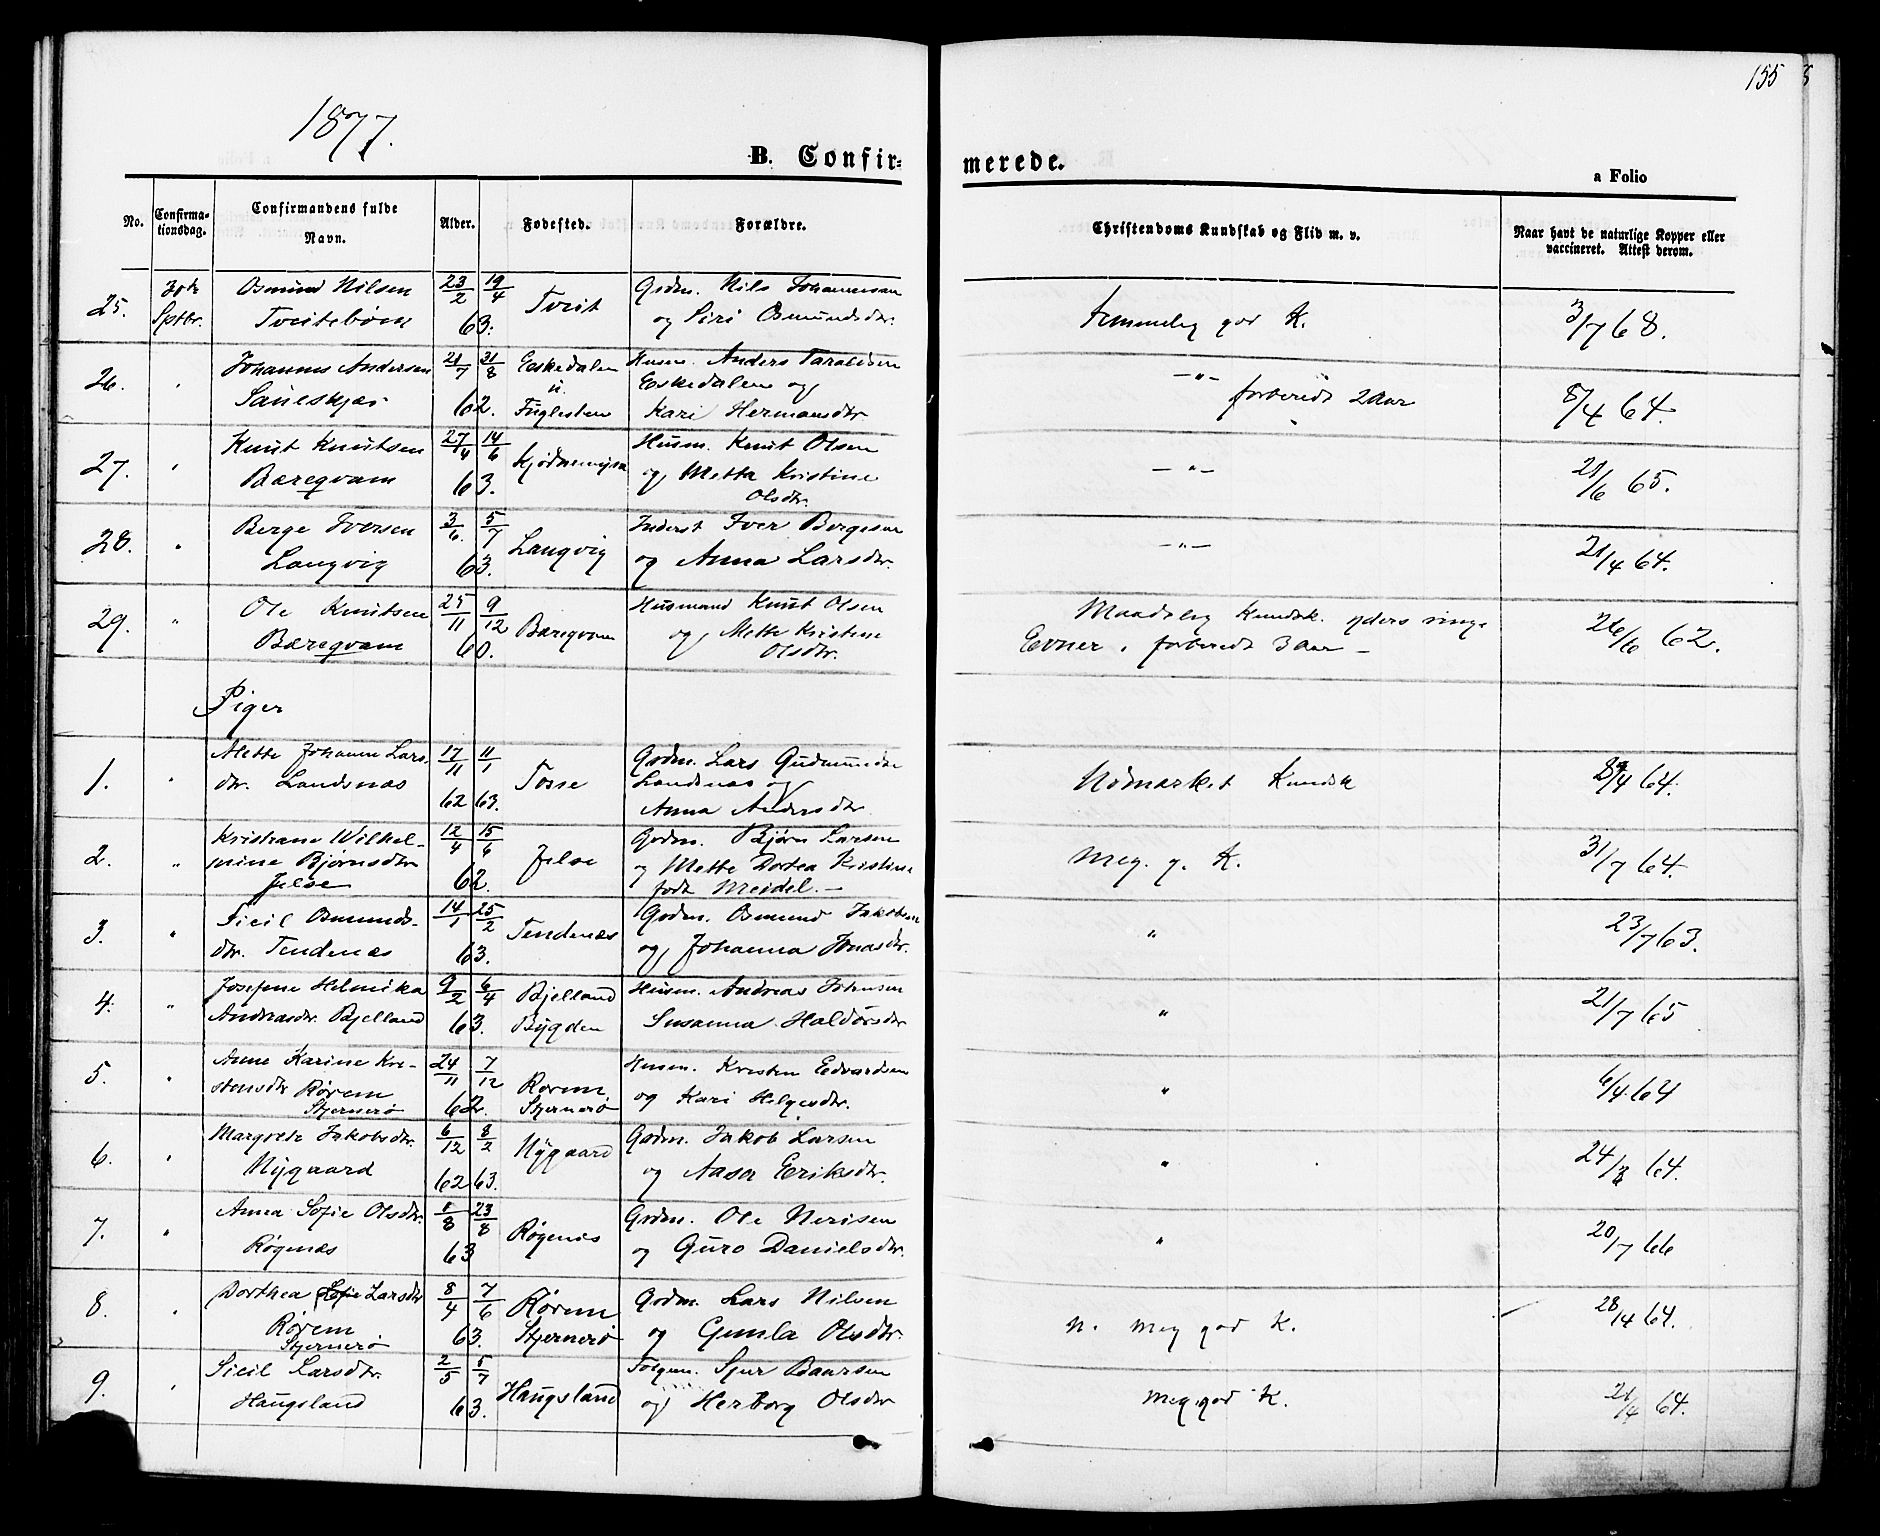 155
1877.
B. Confir-
merede.
a Folio
No.
Confirma-
tionsdag.
Confirmandens fulde
Navn.
Alder.
Fødested.
Forældre.
Christendoms Kundskab og Flid m. v.
Naar havt de naturlige Kopper eller
vaccineret. Attest derom.
25. Sptbr. Osmund Nilsen 23/2 19/4 Tveit Grdm. Nils Johannesen
63. og Siri Osmundsdtr. god K. 3/7 68.
26. " Johannes Andersen 21/7 31/8 Eskedalen Husm. Anders
62. Fuglesteen Eskedalen og
Kari Hermansdtr. —"— forberedt 2 Aar 8/4 64.
27. " Knut Knutsen 27/4 14/6 Husm. Knut Olsen
Bæreqvam 63. og Metta Kristine
Olsdtr. —"— 21/6 65.
28. " Berge Iversen 3/6. 5/7 Langvig Inderst Iver Bergesen
Langvig 63. og Anna Larsdtr. —"— 21/4 64.
29. " Ole Knutsen 25/11 9/12 Bæreqvam Husmand Knut Olsen
Bæreqvam 60. og Mette Kristine
Olsdtr. Maadelig Kundsk. yders ringe
Evner, forberedt 3 Aar — 26/6 62.
Piger
1. " Mette Johanne Lars
dtr. Landsnæs 17/11 62 11/1 63. Tosse Grdm. Lars
Landsnæs og
Anna Andersdtr Udmærket Kundsk 64.
2. " Kristiane Wilhel-
mine Bjørnsdtr
Jelse 12/4 15/6 62. Jelse Grdm. Bjørn Larsen
og Mette Dortea Kristine
født Meidel. — Meg. g. K. 31/7 64.
3. " Sicil Osmunds-
dtr. Tendenæs 14/1 25/2 63. Tendenæs Grdm. Osmund Jakobsen
og Johanna Jonasdtr. " 23/7 63.
4. " Josefine Helmika
Andreasdtr. Bjelland 9/2 6/4 63. Bjelland
Bygden Husm. Andreas Johnsen
Susanna Haldorsdtr " 21/7 65
5. " Anne Karine Kri-
stensdtr Rørem
Stjernerø 24/11 7/12 62. Rørem
Stjernerø Husm. Kristen Edvardsen
og Kari Helgesdtr. " 6/4 64
6. " Margrete Jakobsdtr.
Nygaard 6/12 62 8/2 63. Nygaard Grdm. Jakob Larsen
og Aasa Eriksdtr. " 64.
7. " Anna Sofie Olsdtr.
Røgenæs 23/8 63 Røgenæs Grdm. Ole Nerisen
og Guro Danielsdtr. " 20/7 66
8. " Dorthea Larsdtr
Rørem
Stjernerø 8/4 7/6 63. Rørem
Stjernerø Grdm. Lars Nilsen
og Gunla Olsdtr. n. meg god K. 28/4 64.
9. " Sicil Larsdtr.
Haugsland 2/5 5/7 63. Haugsland Sjur Baarsen
og Herborg Olsdtr Meg god K. 21/4 64.